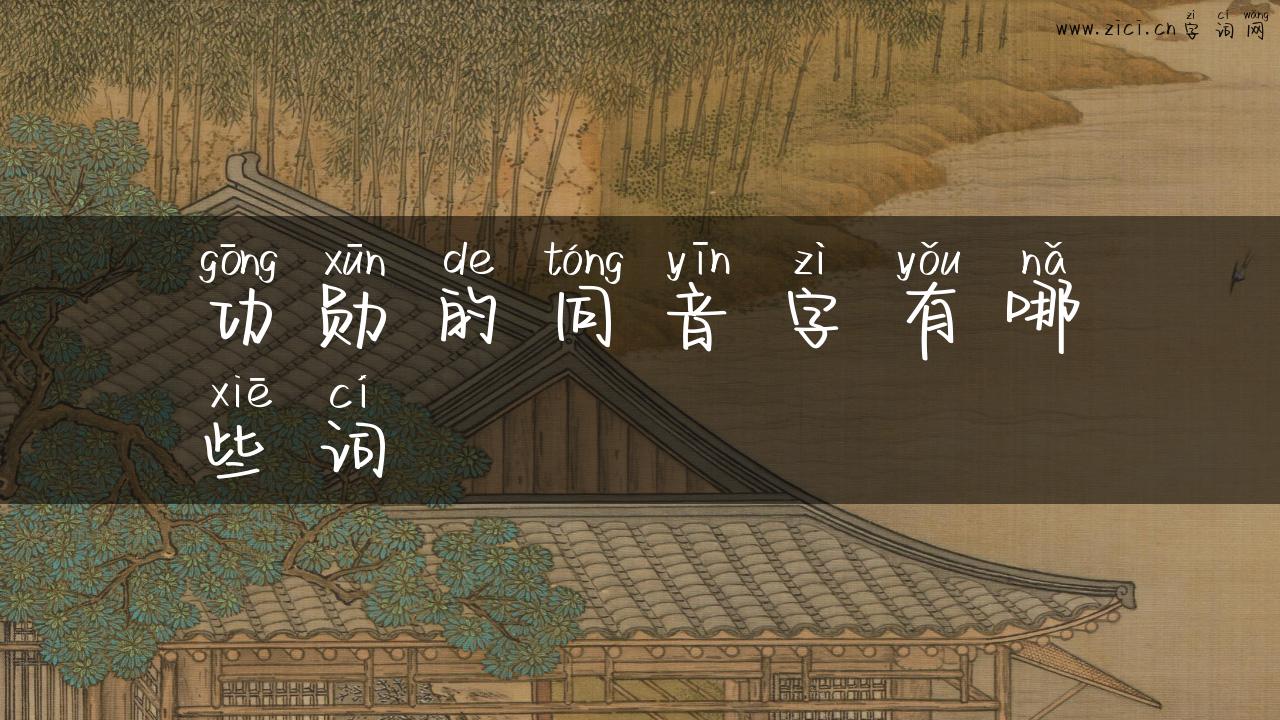 zì cí wǎng
www.zici.cn字词网
gōng xūn de tóng yīn zì yǒu nǎ
功勋的同音字有哪
xiē cí
些词